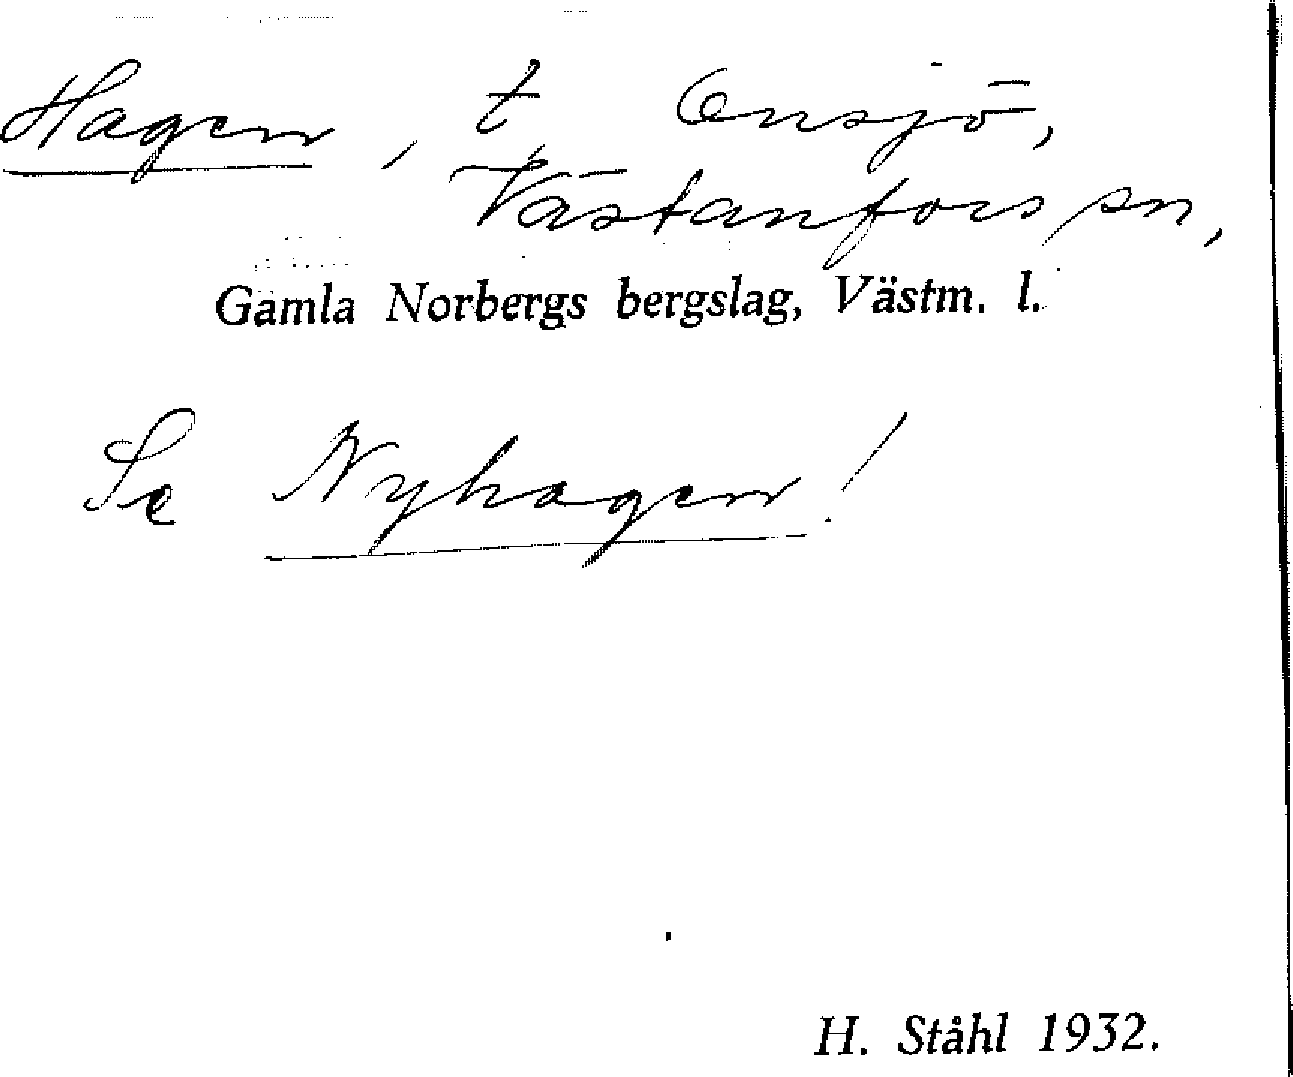 Hagen, t Onsjö,
Västanfors sn,
Gamla Norbergs bergslag, Västm. l.
Se Nyhagen!
H. Ståhl 1932.